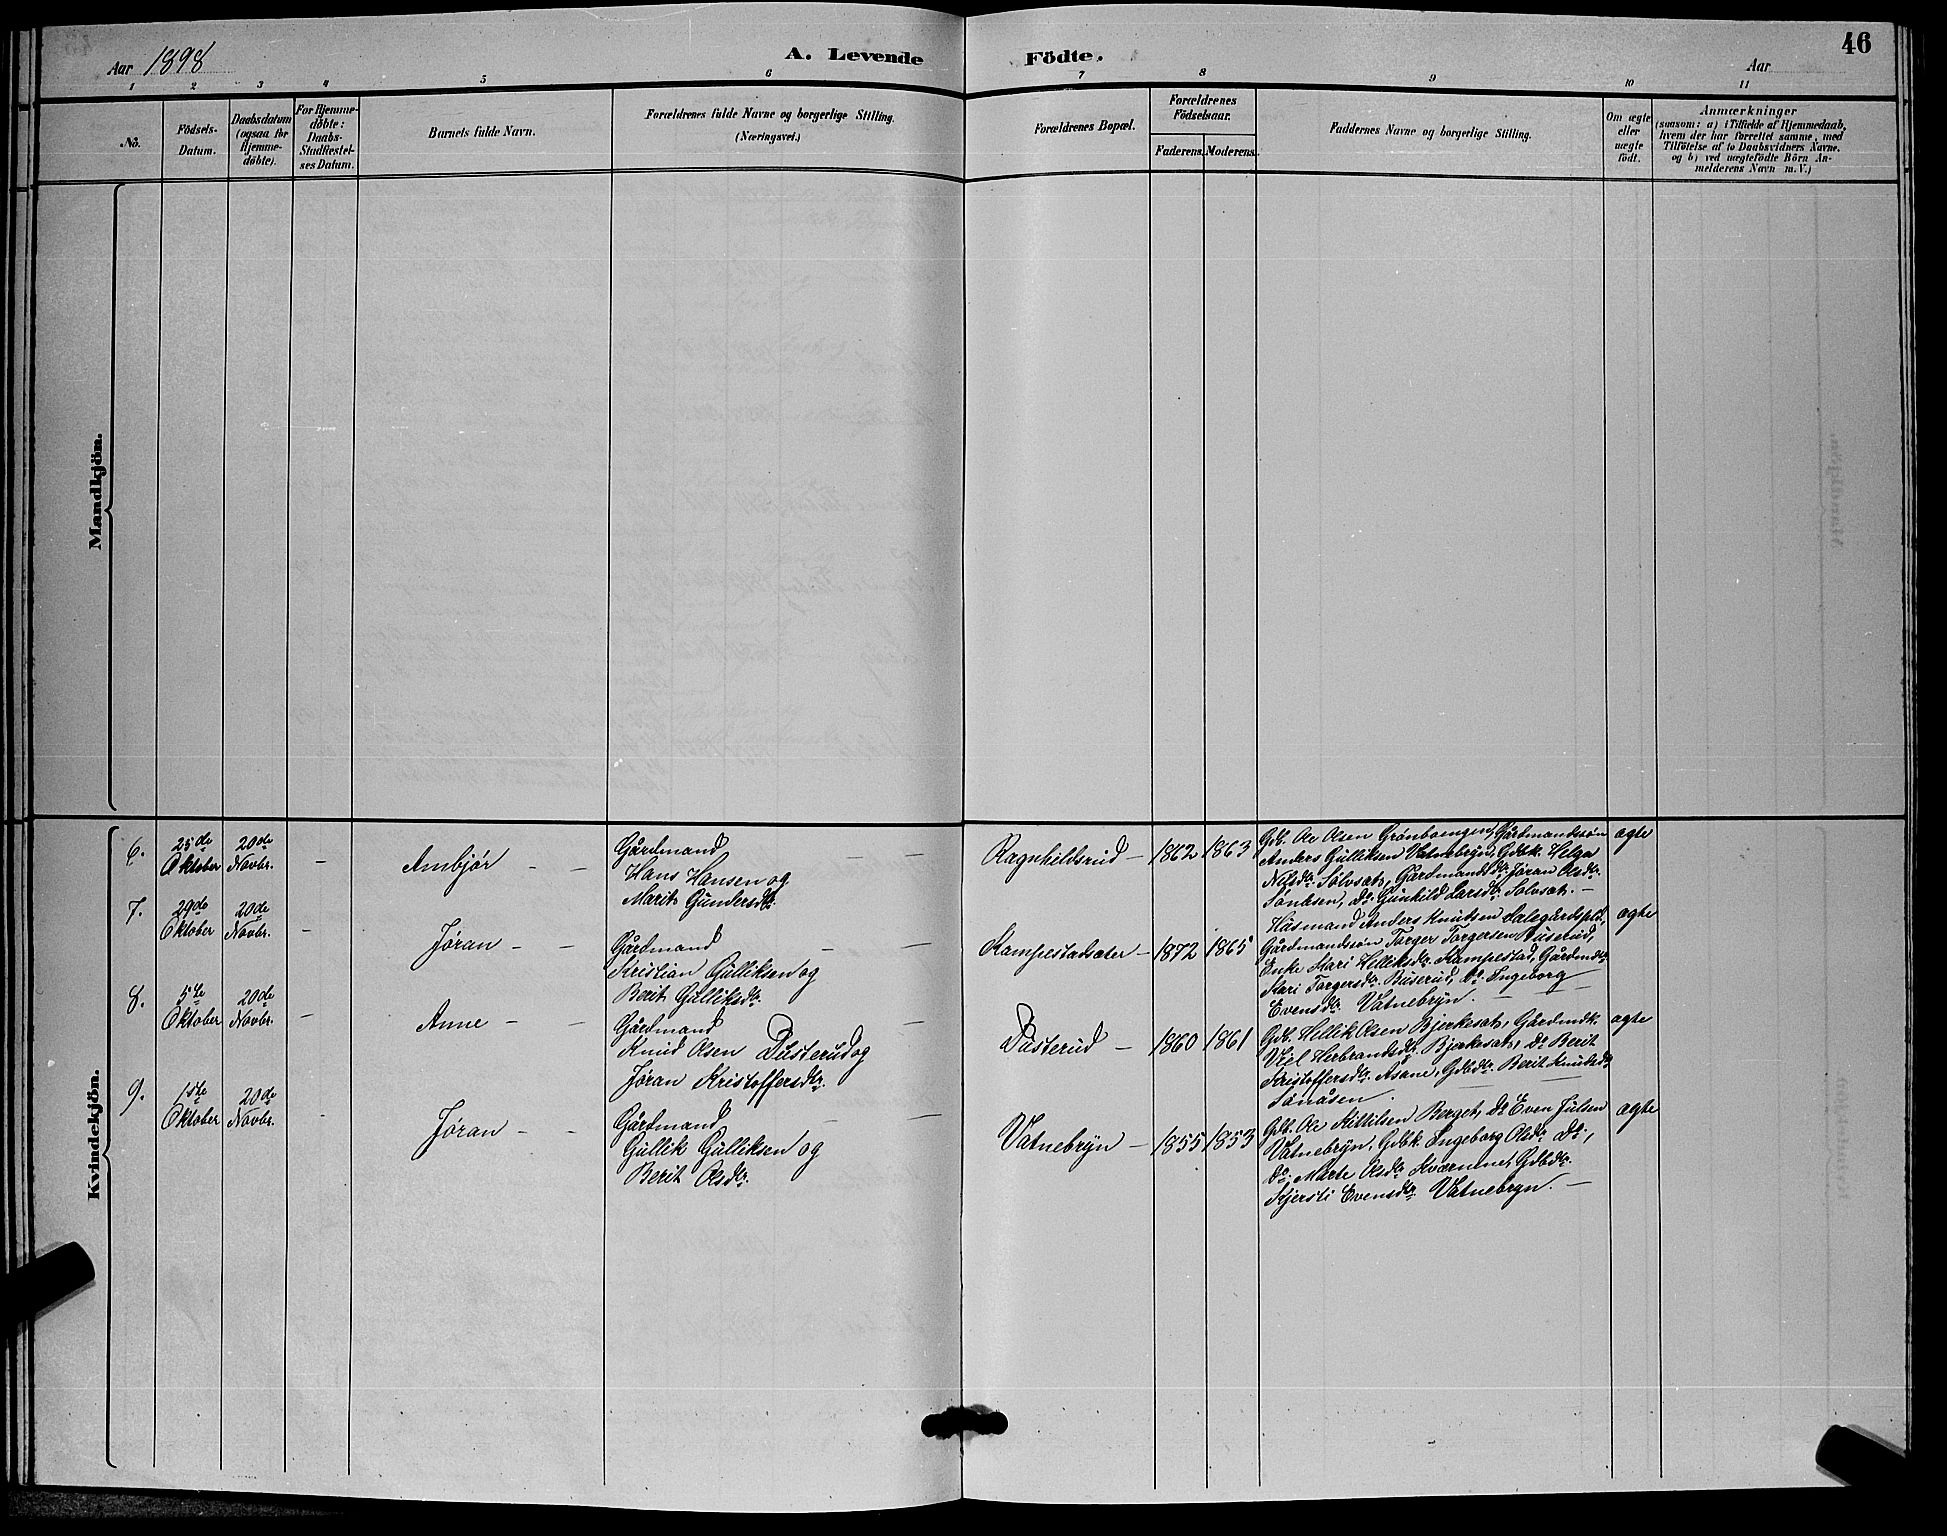 46
Aar 1898
A. Levende Födte.
Aar
1 2 3 4 5 6 7 8 9 10 11
No.
Födsels-
Datum.
Daabsdatum
(ogsaa for
Hjemme-
døbte).
For Hjemme-
døbte:
Daabs-
Stadfæstel-
ses Datum.
Barnets fulde Navn.
Forældrenes fulde Navne og borgerlige Stilling.
(Næringsvei.)
Forældrenes Bopæl.
Forældrenes
Födselsaar.
Faderens. Moderens.
Faddernes Navne og borgerlige Stilling.
Om ægte
eller
uægte
födt.
Anmærkninger
(saasom: a) i Tilfælde af Hjemmedaab,
hvem der har forrettet samme, med
Tilföielse af to Daabsvidners Navne.
og b) ved uægtefödte Börn An-
melderens Navn m. V.)
Mandkjön.
Kvindekjön.
6.
25de
Oktober
20de
Novbr.
–
Ambjør – –
Gårdmand
Hans Hansen og
Marit Gundersdtr.
Ragnhildsrud –
1862
1863
Gdb. Ole Olsen Grønboengen, Gårdmandssøn
Anders Gulliksen Vatnebryn, Gdbk. Helga
Nilsdtr. Solosat, Gårdmandsdtr. Jøran Olsdtr.
Sønåsen, Do Gunhild Larsdtr. Solosat. –
ægte
7.
29de
Oktober
20de
Novbr.
–
Jøran – –
Gårdmand
Kristian Gulliksen og
Berit Gulliksdtr.
Kampestadsæter –
1872
1865
Husmand Anders Knutsen
Gårdmandssøn Torger Torgersen Buserud,
Enke Mari Helliksdtr. Kampestad, Gårdmdtr.
Mari Torgersdtr. Buserud, Do Ingeborg
Evensdtr. Vatnebryn. –
ægte
8.
5te
Oktober
20de
Novbr.
–
Anne – –
Gårdmand
Knud Olsen Dusterud og
Jøran Kristoffersdtr.
Dusterud –
1860
1861
Gdb. Hellik Olsen Bjerkesat, Gårdmdk.
Herbrandsdtr. Bjerkesat, Do Berit
Kristoffersdtr. Asane, Gdbdtr. Berit Knudsdtr.
Sønåsen.
ægte
9.
1ste
Oktober
20de
Novbr.
–
Jøran – –
Gårdmand
Gullik Gulliksen og
Berit Olsdtr.
Vatnebryn –
1855
1853
Gdb. Ole Kittilsen Berget, Do Even Julsen
Vatnebryn, Gdbk. Ingeborg Olsdtr. Do.,
Do. Marte Olsdtr. Kværnme, Gdbdtr.
Kjersti Evensdtr. Vatnebryn. –
ægte